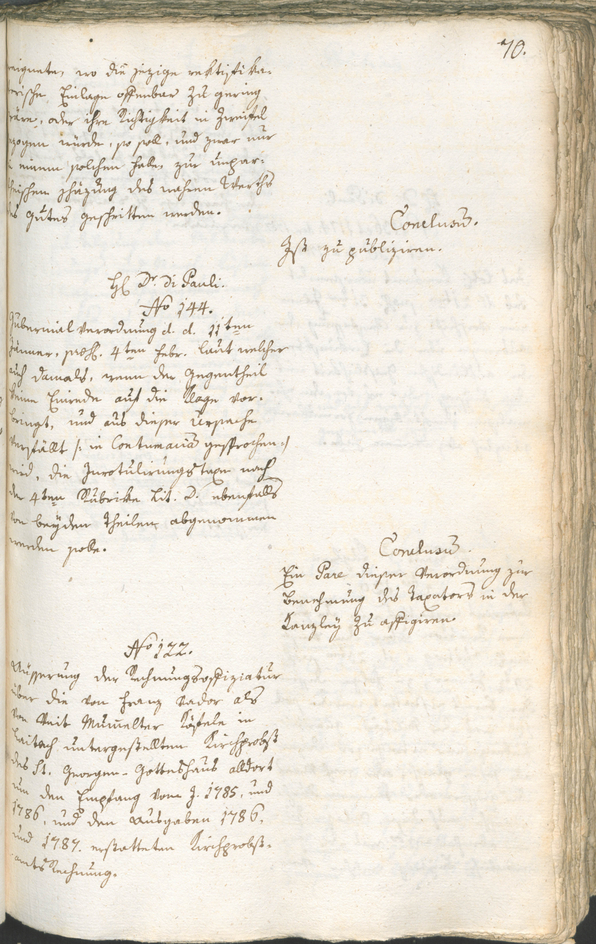 70.
eignete, wo die jezige rektifika-
rische Einlage offenbar zu gering
wäre, oder ihre Richtigkeit in Zweifel
zogen würde, so soll, und zwar nur
einem solchen falle, zur unpar-
theischen schäzung des wahren Werths
des Gutes geschritten werden.
Conclusũ.
Ist zu publiziren.
H Dr. di Pauli.
No 144.
Gubernial Verordnung d. d. 11ten
Jänner, 4ten Febr. laut welcher
auch damals, wenn der Gegentheil
keine Einrede auf die Klage vor-
bringt, und aus dieser Ursache
verfällt /: in Contumaciã gesprochen :/
wird, die Inrotulirungstaxe nach
der 4ten Rubrike Lit. D. ebenfalls
von beyden Theilen abgenommen
werden solle.
Conclusũ.
Ein Pare dieser Verordnung zur
Benehmung des Taxators in der
Kanzley zu affigiren.
No 122.
Äusserung der Rechnungsoffiziatur
über die von Franz Vador als
von Veit Mumelter in
Laitach untergestellten Kirchprobst
des St. Georgen-Gottshaus alldort
um den Empfang vom J. 1785, und
1786, und den Ausgaben 1786,
und 1787. erstatteten Kirchprobst-
amts Rechnung.